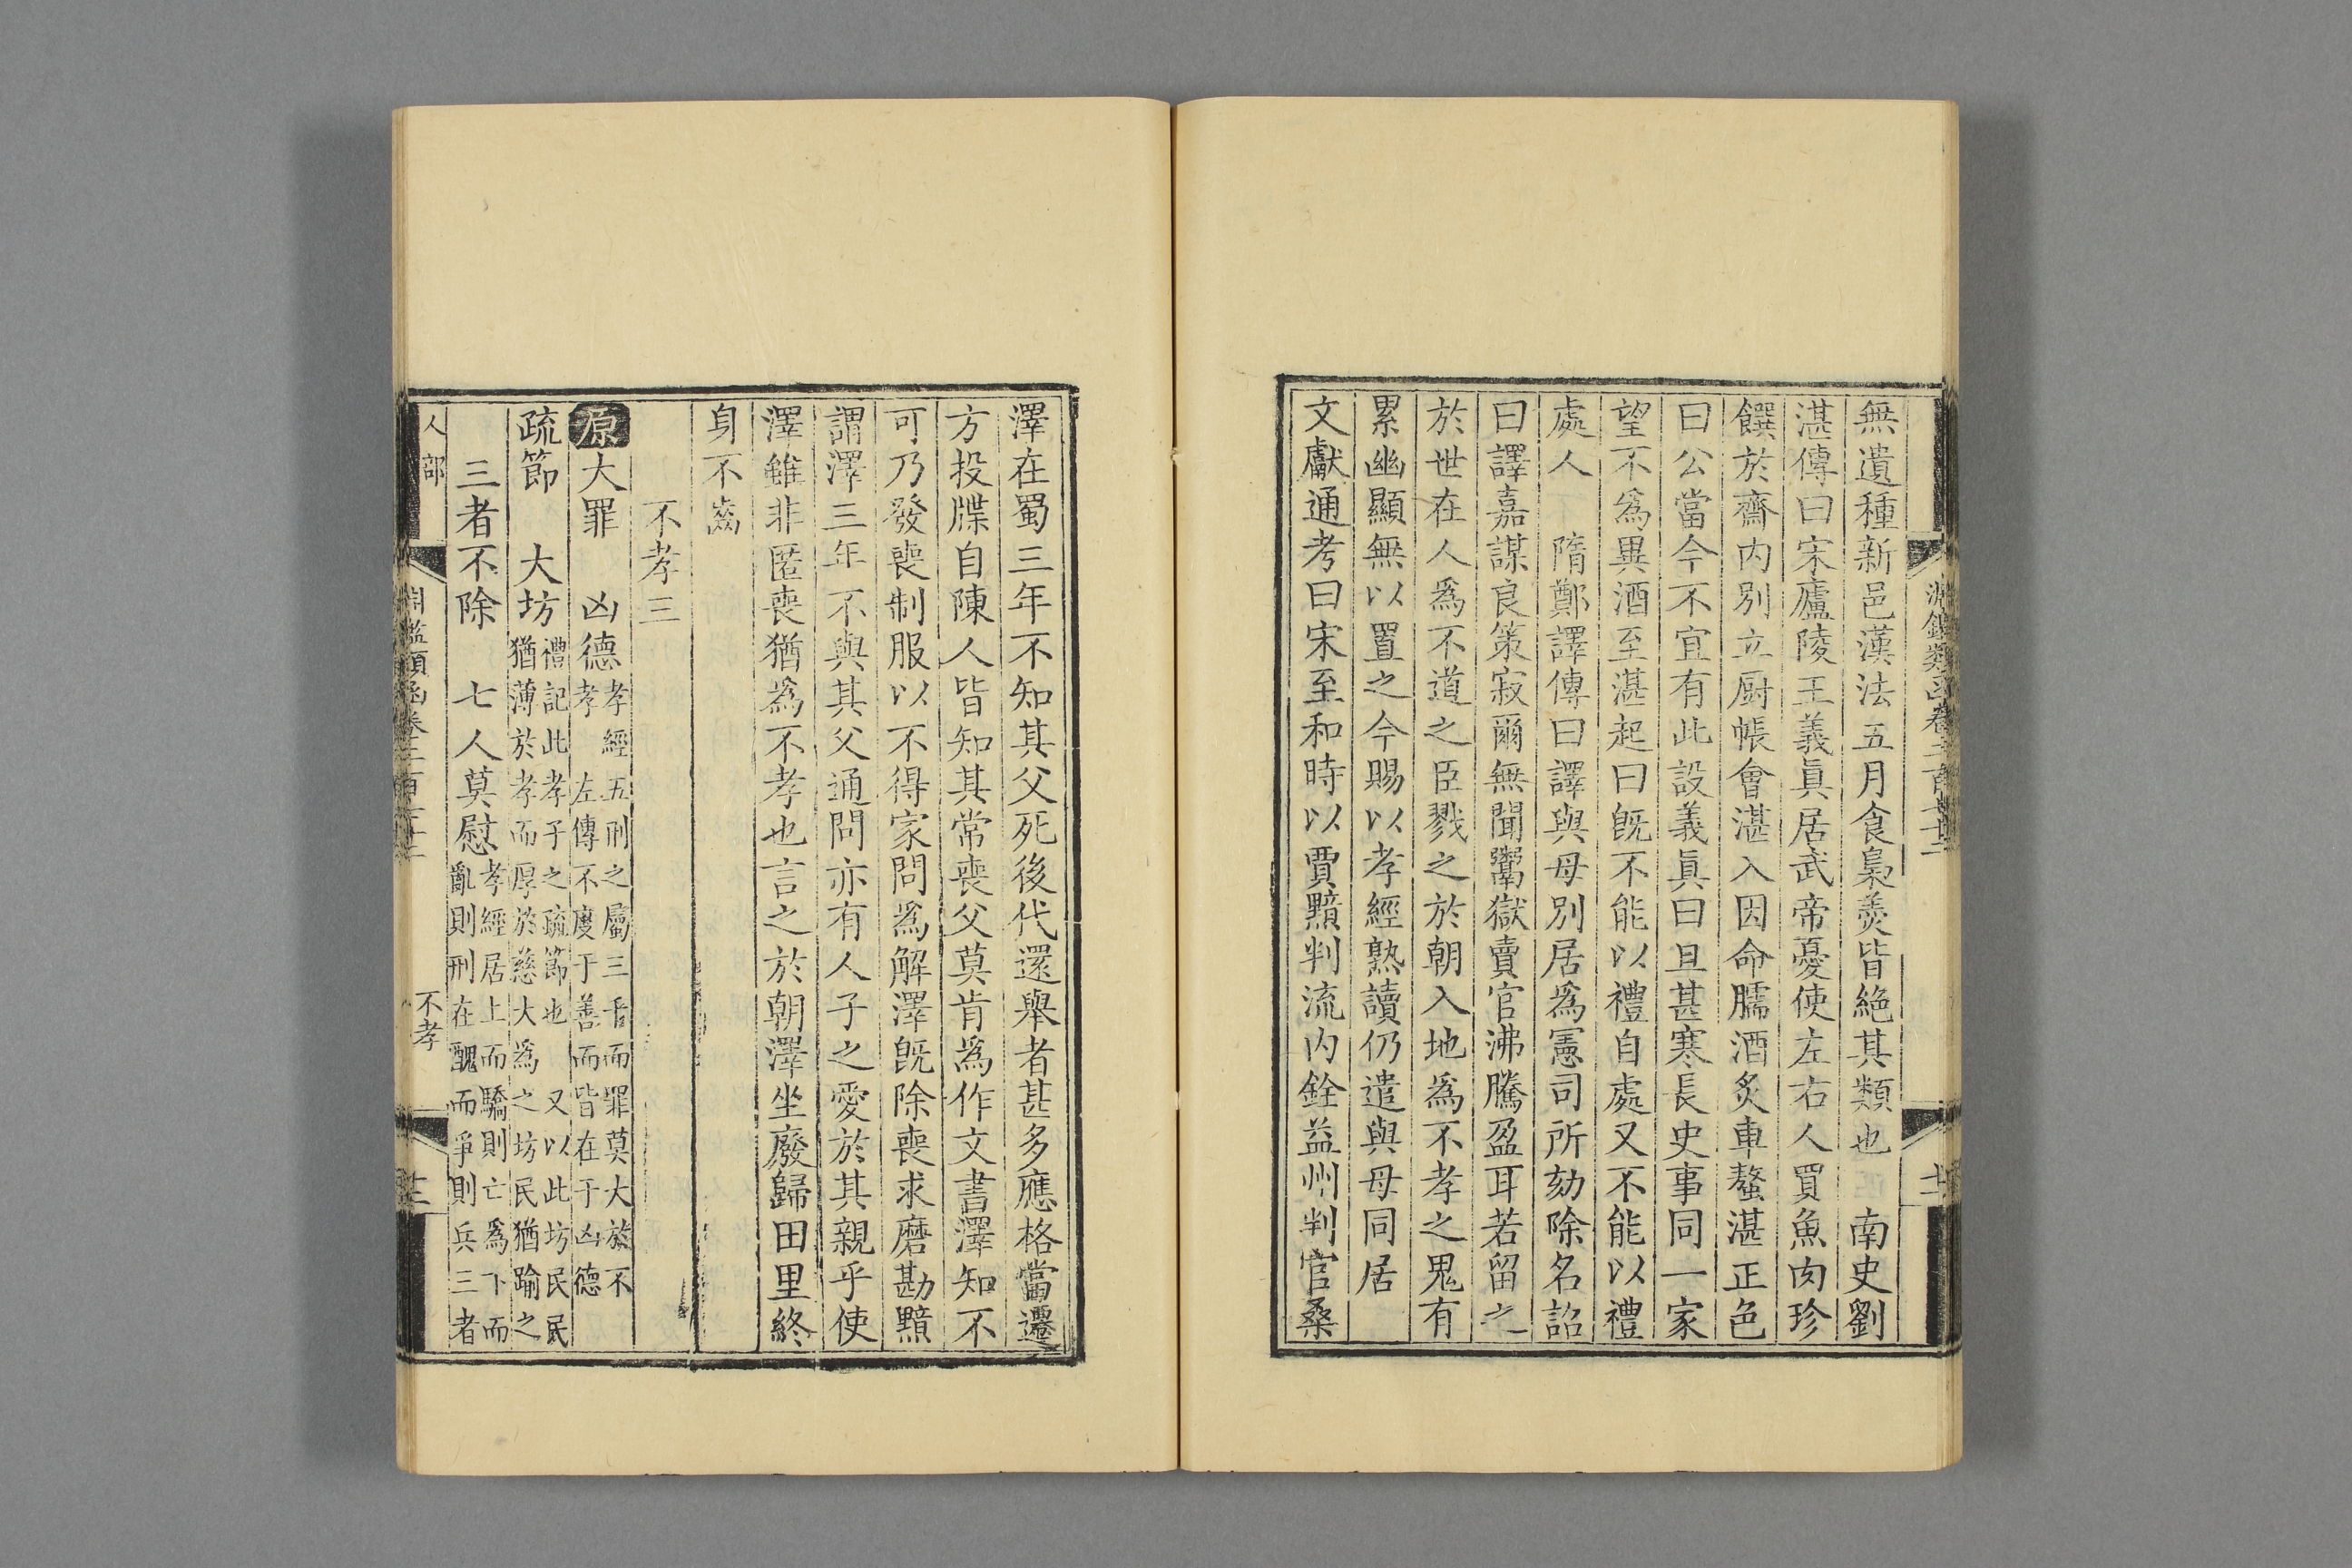 無遺種新邑漢法五月食梟羹皆絶其類也　南史劉
湛傳曰宋廬陵王義眞居武帝憂使左右人買魚肉珍
饌於齋内別立厨帳會湛入因命臑酒炙車螯湛正色
曰公當今不宜有此設義眞曰旦甚寒長史事同一家
望不爲異酒至湛起曰旣不能以禮自處又不能以禮
處人　隋鄭譯傳曰譯與母別居爲憲司所劾除名詔
曰譯嘉謀良策寂爾無聞鬻獄賣官沸騰盈耳若留之
於世在人爲不道之臣戮之於朝入地爲不孝之鬼有
累幽顯無以置之今賜以孝經熟讀仍遣與母同居
文獻通考曰宋至和時以賈黯判流内銓益州判官桑
澤在蜀三年不知其父死後代還舉者甚多應格當遷
方投牒自陳人皆知其常喪父莫肯爲作文書澤知不
可乃發喪制服以不得家問爲解澤旣除喪求磨勘黯
謂澤三年不與其父通問亦有人子之愛於其親乎使
澤雖非匿喪猶爲不孝也言之於朝澤坐廢歸田里終
身不齒
不孝三
原大罪　凶德孝經五刑之屬三千而罪莫大於不
孝　左傳不度于善而皆在于凶德
疏節　大坊禮記此孝子之疏節也　又以此坊民民
猶薄於孝而厚於慈大爲之坊民猶踰之
三者不除　七人莫慰孝經居上而驕則亡爲下而
亂則刑在醜而爭則兵三者
人部
淵鑑類函卷二百七十二
不孝